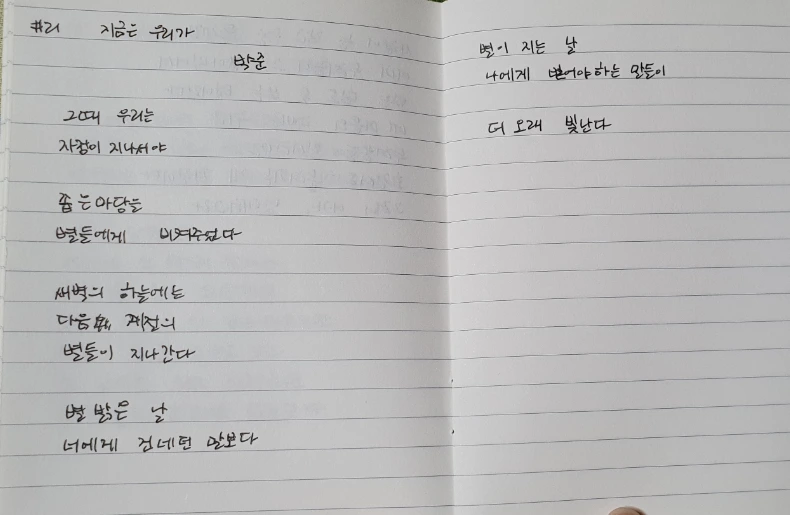 #21 지금은 우리가
박준
그때 우리는
자정이 지나서야
좁은 마당을
별들에게 비켜주었다
새벽의 하늘에는
다음 계절의
별들이 지나간다
별 밝은 날
너에게 건네던 말보다
별이 지는 날
나에게 빌어야하는 말들이
더 오래 빛난다